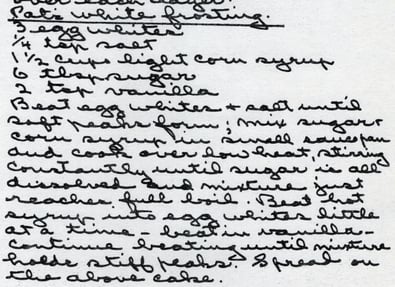 over each layer.
Pats white frosting.
3 egg whites
1/4 tsp salt
1 1/2 cups light corn syrup
6 tbsp sugar
2 tsp vanilla
Beat egg whites + salt until
soft peaks form; mix sugar +
corn syrup in small sauce pan
and cook over low heat, stirring
constantly until sugar is all
dissolved and mixture just
reaches full boil. Beat hot
syrup into egg whites little
at a time - beat in vanilla -
continue beating until mixture
holds stiff peaks. Spread on
the above cake.